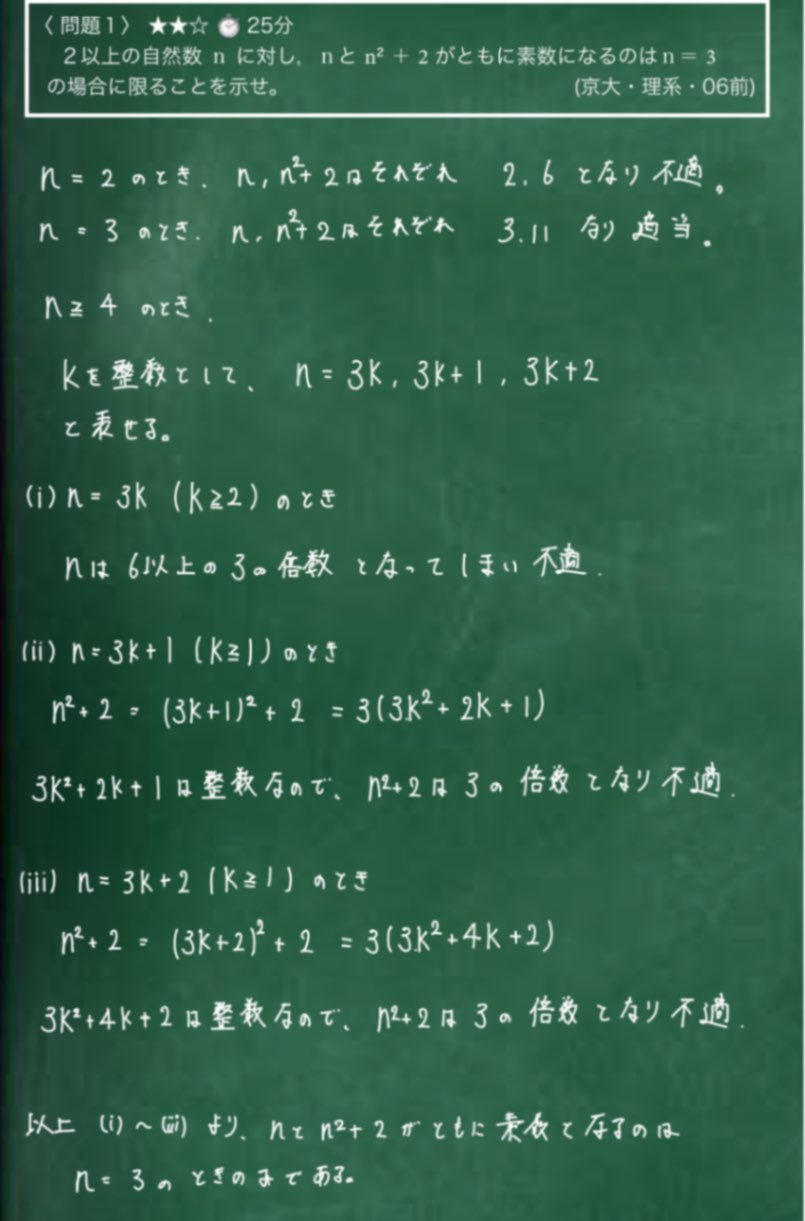 〈問題1〉 ★★☆ ⏱ 25分
2以上の自然数 n に対し, nとn² + 2がともに素数になるのはn = 3
の場合に限ることを示せ。 (京大・理系・06前)
n = 2 のとき. n, n²+2はそれぞれ 2.6 となり不適。
n = 3 のとき. n, n²+2はそれぞれ 3.11 なり適当。
n ≧ 4 のとき.
kを整数として、 n = 3k, 3k+1, 3k+2
と表せる。
(i) n = 3k (k≧2) のとき
nは 6以上の3の倍数となってしまい不適.
(ii) n=3k+1 (k≧1) のとき
n²+2 = (3k+1)²+2 = 3(3k²+2k+1)
3k²+2k+1は整数なので、n²+2は3の倍数となり不適.
(iii) n=3k+2 (k≧1) のとき
n²+2 = (3k+2)²+2 = 3(3k²+4k+2)
3k²+4k+2は整数なので、n²+2は3の倍数となり不適.
以上 (i)~(iii) より、nとn²+2がともに素数となるのは
n = 3 のときのみである。